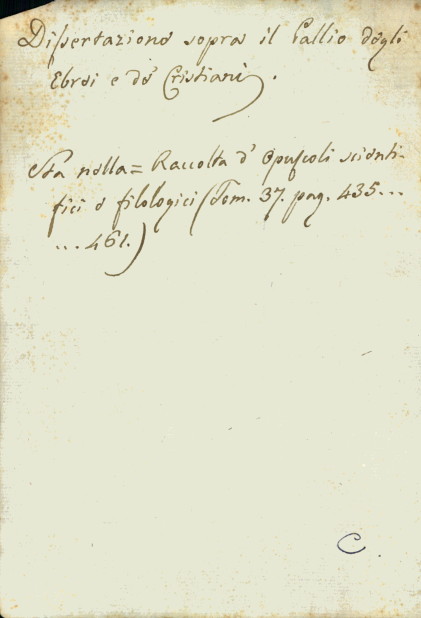 Dissertazione sopra il Pallio degli
Ebrei e de' Cristiani.
Sta nella = Raccolta d' Opuscoli scienti-
fici e filologici (Tom. 37. pag. 435...
... 461.)
C.